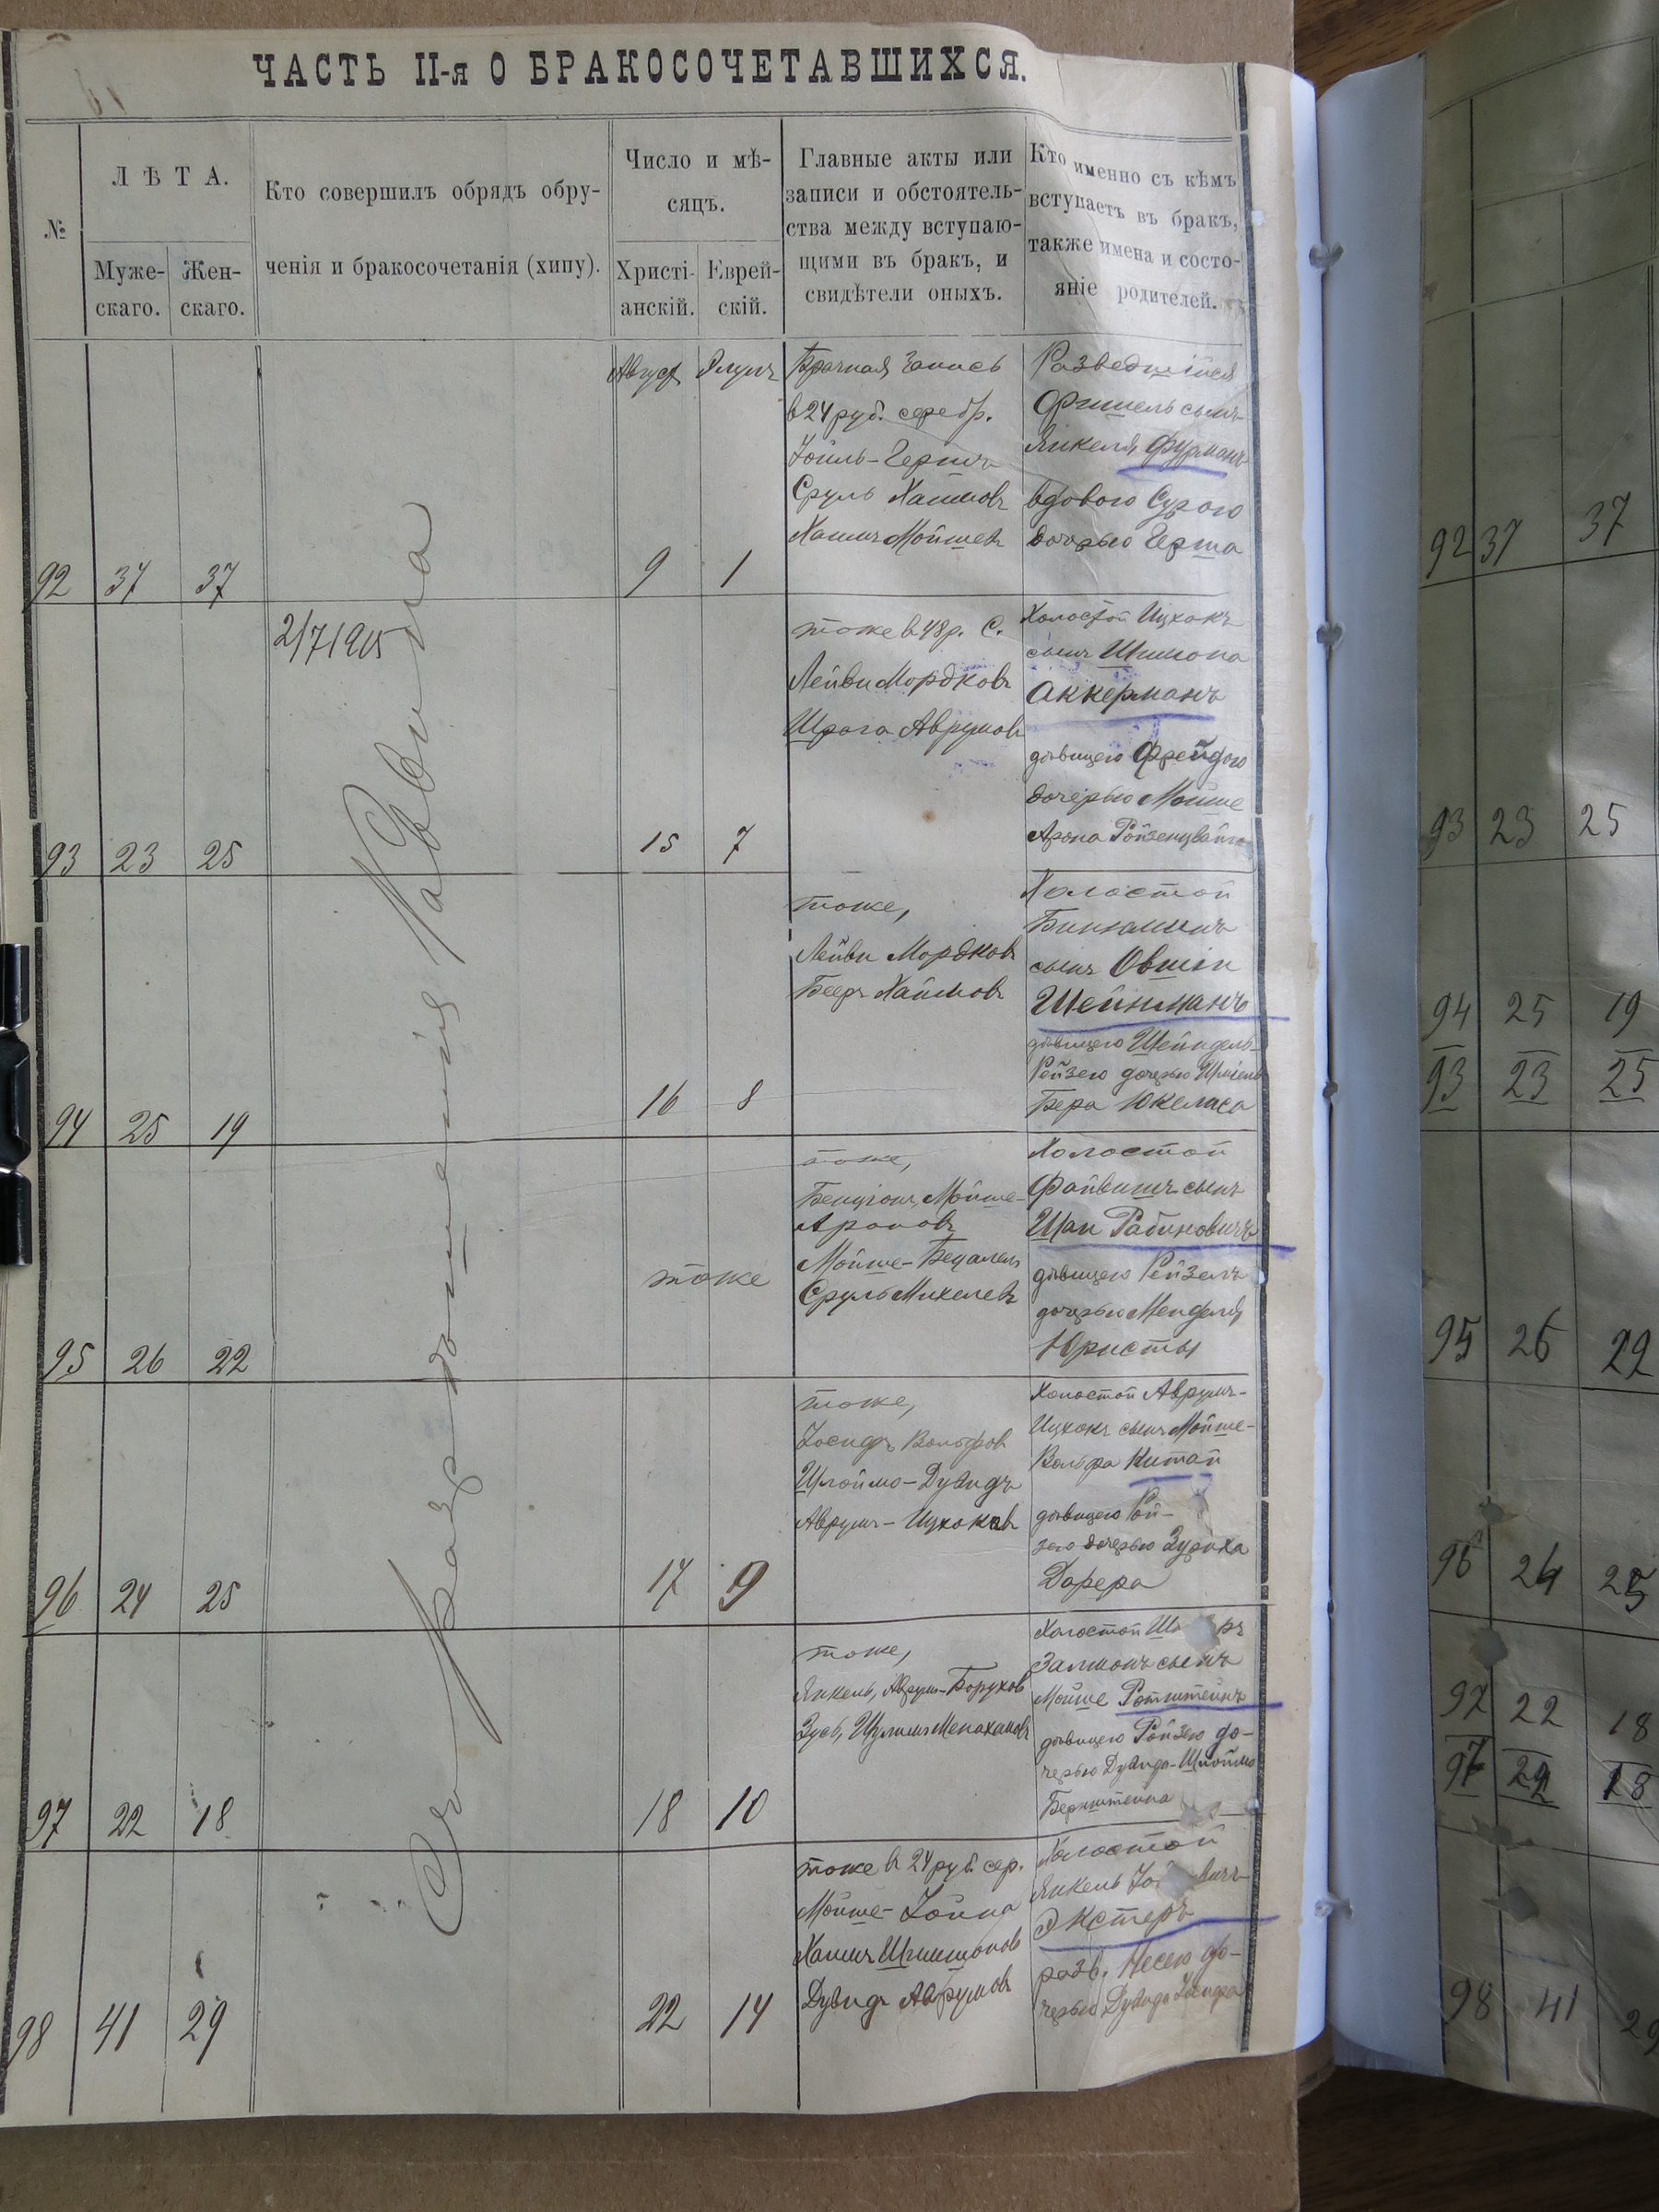 ЧАСТЬ II-я О БРАКОСОЧЕТАВШИХСЯ.
№
ЛѢТА.
Муже-
скаго.
Жен-
скаго.
Кто совершилъ обрядъ обру-
ченія и бракосочетанія (хипу).
Число и мѣ-
сяцъ.
Христі-
анскій.
Еврей-
скій.
Главные акты или
записи и обстоятель-
ства между вступаю-
щими въ бракъ, и
свидѣтели оныхъ.
Кто именно съ кѣмъ
вступаетъ въ бракъ,
также имена и состо-
яніе родителей.
Съ разрѣшенія Раввина
92 37 37
Август Элулъ
9 1
Брачная запись
в 24 руб. серебр.
Іойль-Гершъ
Сруль Хаимовъ
Хаимъ Мойшев
Разведшійся
Фишель сынъ
Янкеля Фурманъ
вдовою Сурою
дочерью Герша
93 23 25
2/7 1915
15 7
тоже в 48 р. С.
Лейви Мордковъ
Шрага Аврумов
Холостой Ицхокъ
сынъ Шимона
Аккерманъ
дѣвицею Фрейдою
дочерью Мойше
Арона Ройзенцвайга
94 25 19
16 8
тоже,
Лейви Мордковъ
Беръ Хаимовъ
Холостой
Биньминъ
сынъ Овшіи
Шейнманъ
дѣвицею Шейндель-
Рейзею дочерью
Бера Юкелиса
95 26 22
тоже
тоже,
Бенціонъ Мойше-
Ароновъ
Мойше-Бецалель
Сруль Михелевъ
Холостой
Файвишъ сынъ
Шаи Рабиновичъ
дѣвицею Рейзелъ
дочерью Менделя
Юристы
96 24 25
17 9
тоже,
Іосифъ Вольфов
Шлойма-Дувидъ
Аврумъ-Ицхоковъ
Холостой Аврумъ-
Ицхокъ сынъ Мойше-
Вольфа Китай
дѣвицею Рой-
зею дочерью Зураха
Дорера
97 22 18
18 10
тоже,
Янкель, Аврум-Борухов
Зусъ, Шулимъ Менахимовъ
Холостой
Залманъ сынъ
Мойше Ротштейнъ
дѣвицею Ройзею до-
черью Дувида-Шлойма
Бернштейна
98 41 29
22 14
тоже в 24 руб. сер.
Мойше-Іойна
Хаимъ Шимшонов
Дувидъ Аврумовъ
Холостой
Янкель
Экстеръ
разв. Несею до-
черью Дувида Іосифа
92 37 37
93 23 25
94 25 19
93 23 25
95 26 22
96 24 25
97 22 18
97 22 18
98 41 29